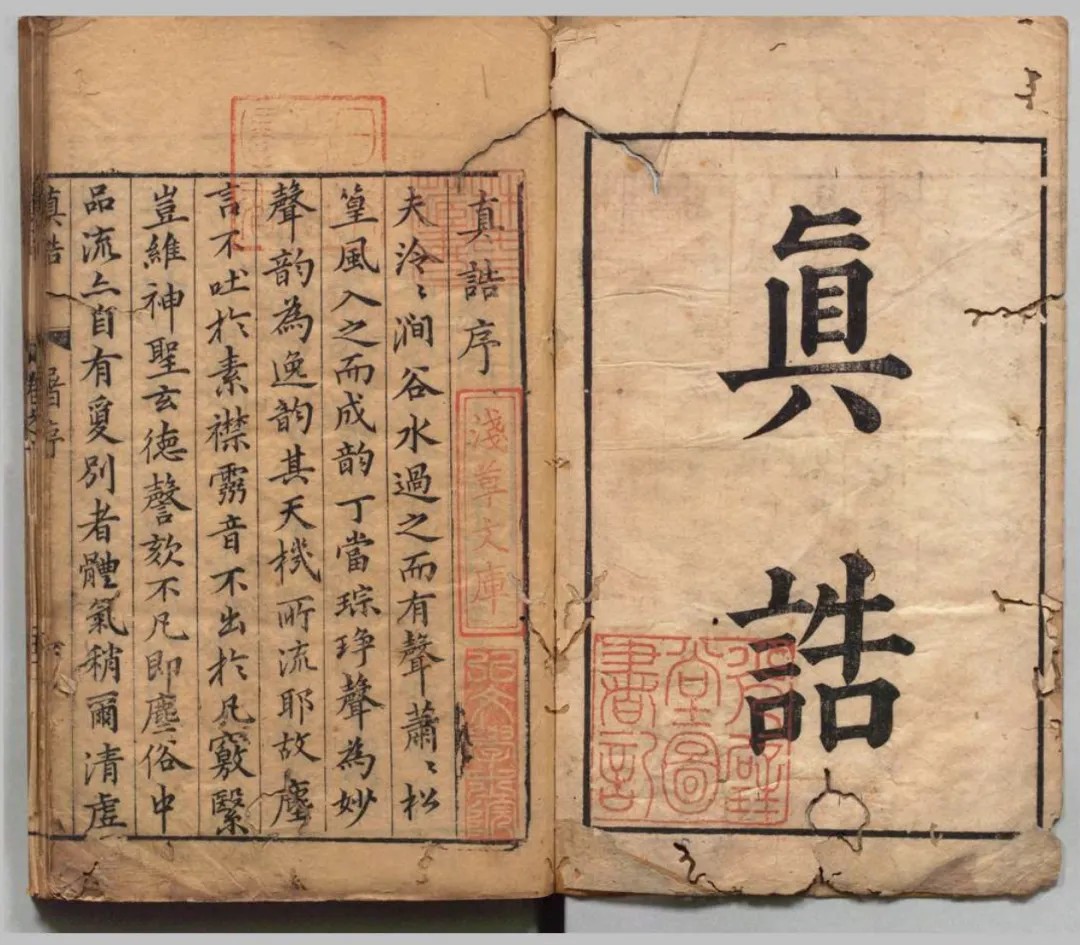 眞誥
真誥序
淺草文庫
夫泠〻澗谷水過之而有聲蕭〻松
篁風入之而成韵丁當琮琤聲為妙
聲韵為逸韵其天機所流耶故塵
言不吐於素襟霛音不出於凡竅繄
豈維神聖玄德謦欬不凡即塵俗中
品流亦自有夐別者體氣稍爾清虛
真誥
序